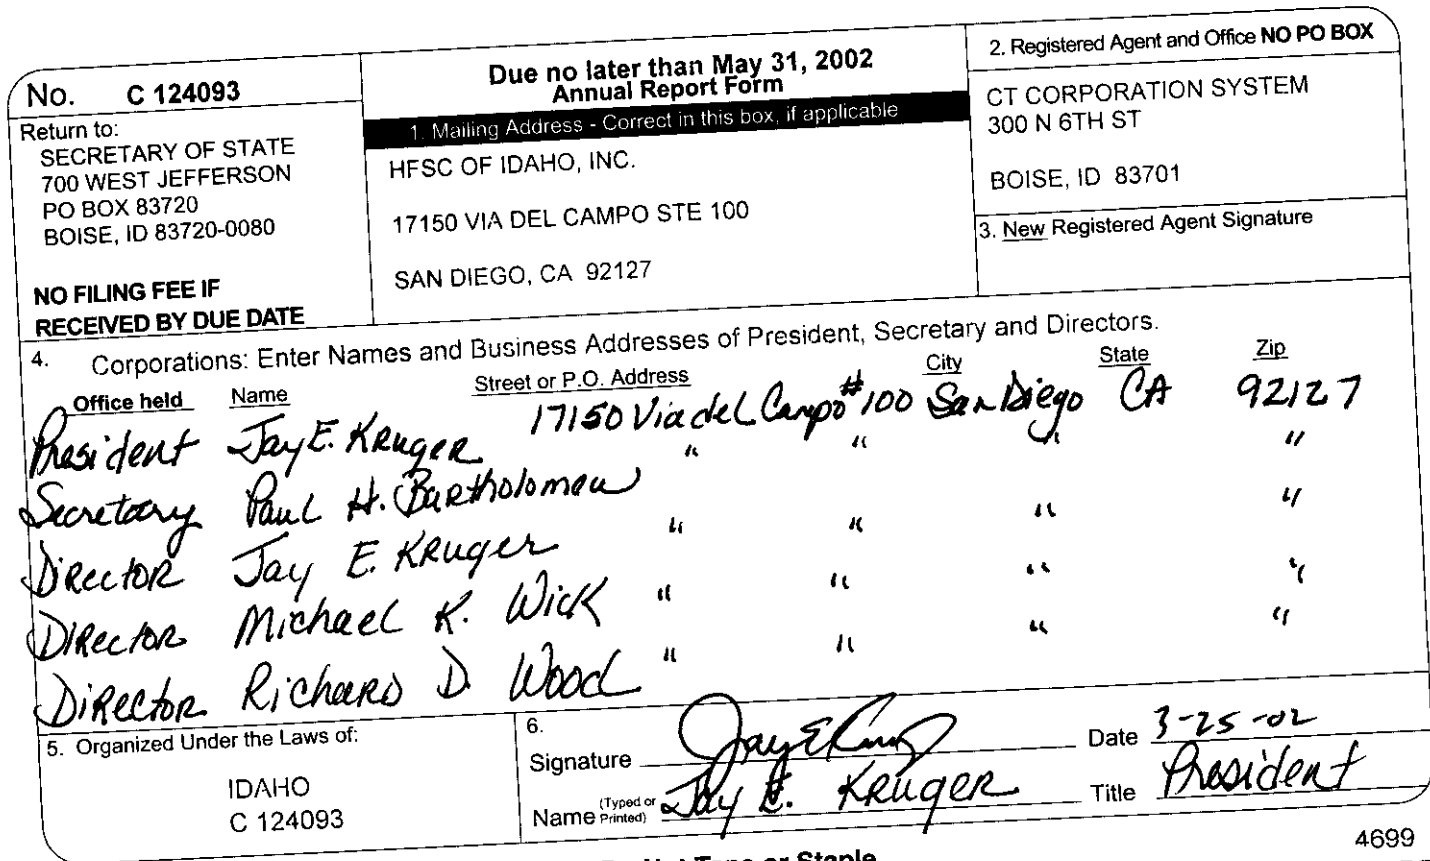 No. C 124093
Return to:
SECRETARY OF STATE
700 WEST JEFFERSON
PO BOX 83720
BOISE, ID 83720-0080
NO FILING FEE IF
RECEIVED BY DUE DATE
Due no later than May 31, 2002
Annual Report Form
1. Mailing Address - Correct in this box, if applicable
HFSC OF IDAHO, INC.
17150 VIA DEL CAMPO STE 100
SAN DIEGO, CA 92127
2. Registered Agent and Office NO PO BOX
CT CORPORATION SYSTEM
300 N 6TH ST
BOISE, ID 83701
3. New Registered Agent Signature
4. Corporations: Enter Names and Business Addresses of President, Secretary and Directors.
Office held Name Street or P.O. Address City State Zip
President Jay E. Kruger 17150 Via del Campo #100 San Diego CA 92127
Secretary Paul H. Bartholomew " " " "
Director Jay E. Kruger " " " "
Director Michael K. Wick " " " "
Director Richard D. Wood " " " "
5. Organized Under the Laws of:
IDAHO
C 124093
6.
Signature Jay E Kruger Date 3-25-02
Name (Typed or Printed) Jay E. Kruger Title President
4699
Do Not Tape or Staple